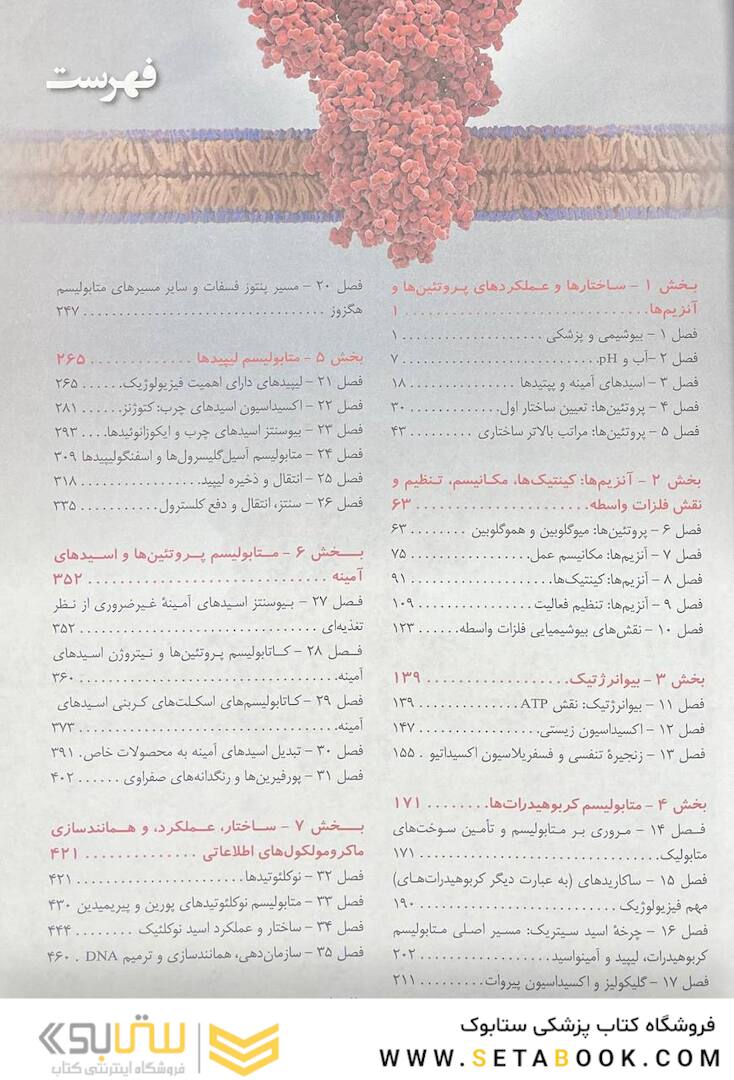 فهرست
بخش ۱ - ساختارها و عملکردهای پروتئین‌ها و
آنزیم‌ها ۱
فصل ۱ - بیوشیمی و پزشکی ۱
فصل ۲ - آب و pH ۷
فصل ۳ - اسیدهای آمینه و پپتیدها ۱۸
فصل ۴ - پروتئین‌ها: تعیین ساختار اول ۳۰
فصل ۵ - پروتئین‌ها: مراتب بالاتر ساختاری ۴۳
بخش ۲ - آنزیم‌ها: کینتیک‌ها، مکانیسم، تنظیم و
نقش فلزات واسطه ۶۳
فصل ۶ - پروتئین‌ها: میوگلوبین و هموگلوبین ۶۳
فصل ۷ - آنزیم‌ها: مکانیسم عمل ۷۵
فصل ۸ - آنزیم‌ها: کینتیک‌ها ۹۱
فصل ۹ - آنزیم‌ها: تنظیم فعالیت ۱۰۹
فصل ۱۰ - نقش‌های بیوشیمیایی فلزات واسطه ۱۲۳
بخش ۳ - بیوانرژتیک ۱۳۹
فصل ۱۱ - بیوانرژتیک: نقش ATP ۱۳۹
فصل ۱۲ - اکسیداسیون زیستی ۱۴۷
فصل ۱۳ - زنجیرهٔ تنفسی و فسفریلاسیون اکسیداتیو ۱۵۵
بخش ۴ - متابولیسم کربوهیدرات‌ها ۱۷۱
فصل ۱۴ - مروری بر متابولیسم و تأمین سوخت‌های
متابولیک ۱۷۱
فصل ۱۵ - ساکاریدهای (به عبارت دیگر کربوهیدرات‌های)
مهم فیزیولوژیک ۱۹۰
فصل ۱۶ - چرخهٔ اسید سیتریک: مسیر اصلی متابولیسم
کربوهیدرات، لیپید و آمینواسید ۲۰۲
فصل ۱۷ - گلیکولیز و اکسیداسیون پیروات ۲۱۱
فصل ۲۰ - مسیر پنتوز فسفات و سایر مسیرهای متابولیسم
هگزوز ۲۴۷
بخش ۵ - متابولیسم لیپیدها ۲۶۵
فصل ۲۱ - لیپیدهای دارای اهمیت فیزیولوژیک ۲۶۵
فصل ۲۲ - اکسیداسیون اسیدهای چرب: کتوژنز ۲۸۱
فصل ۲۳ - بیوسنتز اسیدهای چرب و ایکوزانوئیدها ۲۹۳
فصل ۲۴ - متابولیسم آسیل‌گلیسرول‌ها و اسفنگولیپیدها ۳۰۹
فصل ۲۵ - انتقال و ذخیره لیپید ۳۱۸
فصل ۲۶ - سنتز، انتقال و دفع کلسترول ۳۳۵
بخش ۶ - متابولیسم پروتئین‌ها و اسیدهای
آمینه ۳۵۲
فصل ۲۷ - بیوسنتز اسیدهای آمینهٔ غیرضروری از نظر
تغذیه‌ای ۳۵۲
فصل ۲۸ - کاتابولیسم پروتئین‌ها و نیتروژن اسیدهای
آمینه ۳۶۰
فصل ۲۹ - کاتابولیسم‌های اسکلت‌های کربنی اسیدهای
آمینه ۳۷۳
فصل ۳۰ - تبدیل اسیدهای آمینه به محصولات خاص ۳۹۱
فصل ۳۱ - پورفیرین‌ها و رنگدانه‌های صفراوی ۴۰۲
بخش ۷ - ساختار، عملکرد، و همانندسازی
ماکرومولکول‌های اطلاعاتی ۴۲۱
فصل ۳۲ - نوکلئوتیدها ۴۲۱
فصل ۳۳ - متابولیسم نوکلئوتیدهای پورین و پیریمیدین ۴۳۰
فصل ۳۴ - ساختار و عملکرد اسید نوکلئیک ۴۴۴
فصل ۳۵ - سازمان‌دهی، همانندسازی و ترمیم DNA ۴۶۰
فروشگاه کتاب پزشکی ستابوک
WWW.SETABOOK.COM
ستابوک
فروشگاه اینترنتی کتاب